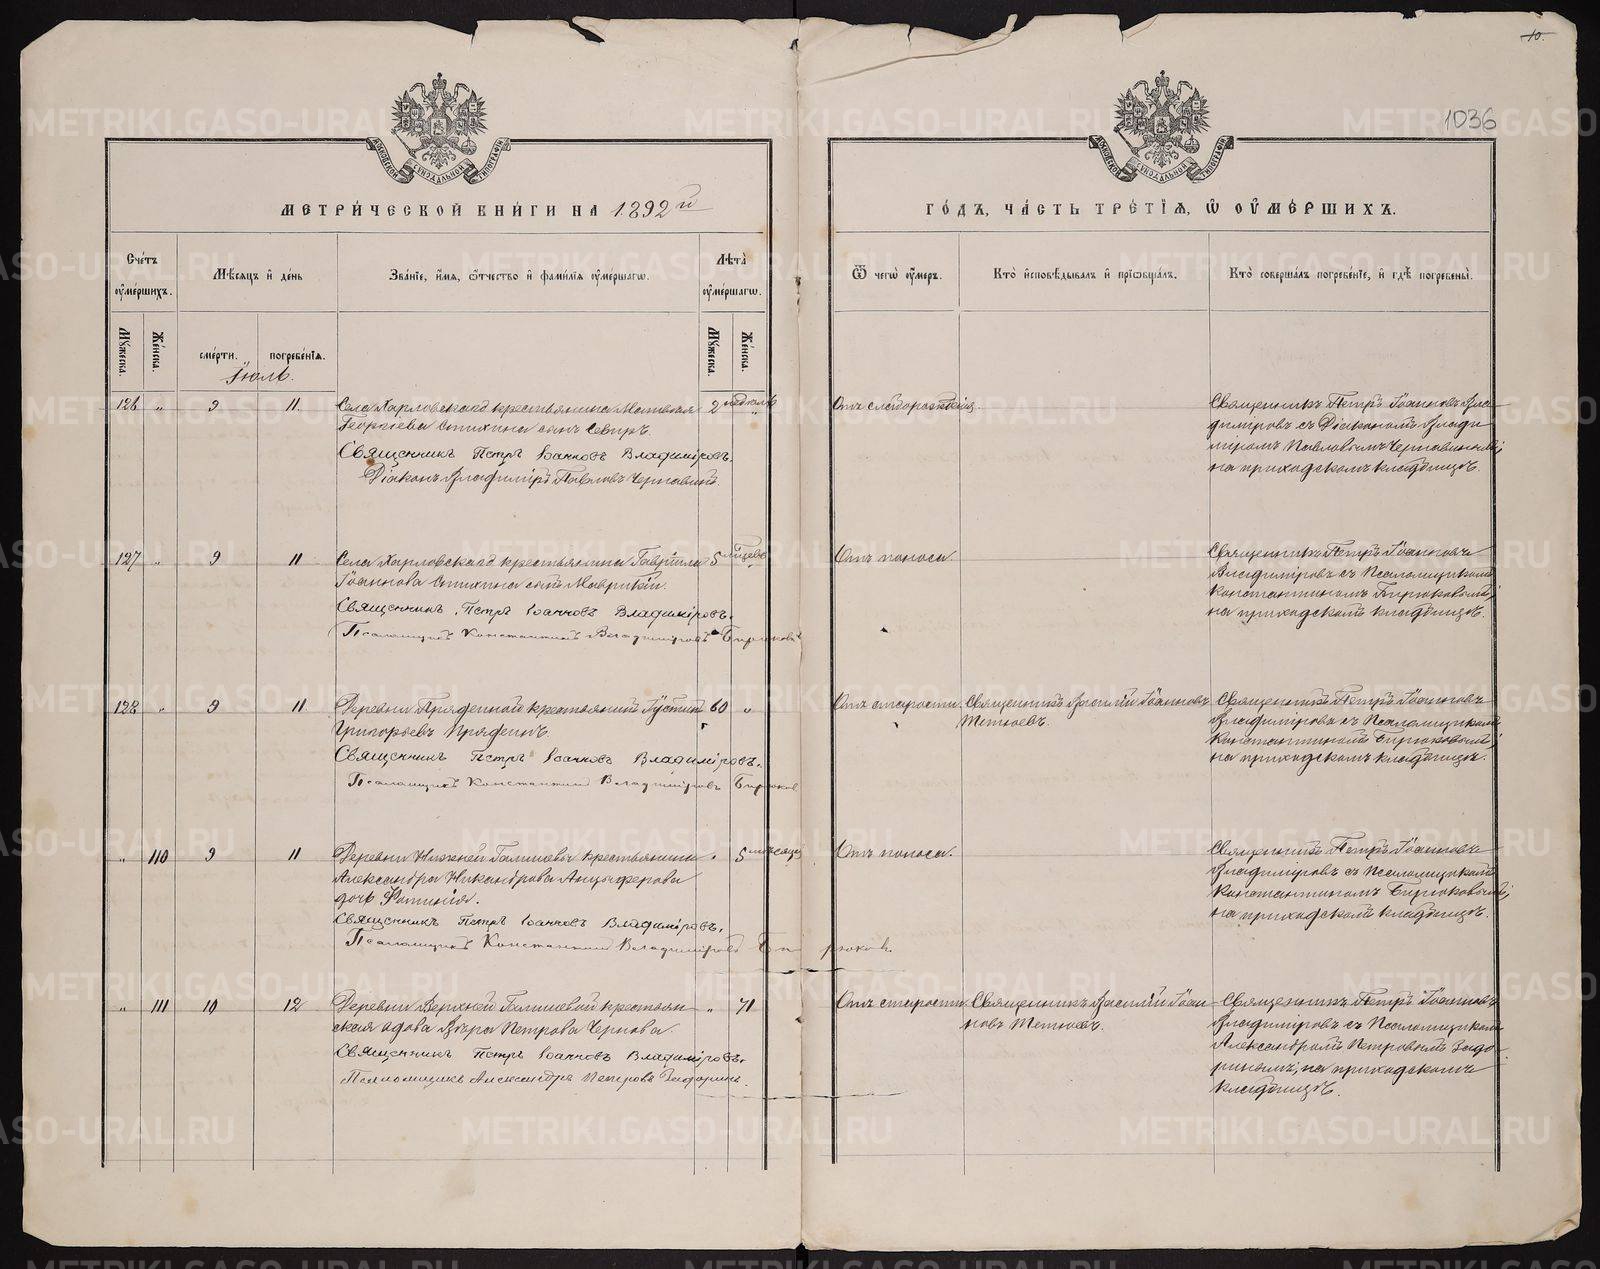 10.
1036
МЕТРИ́ЧЕСКОЙ КНИ́ГИ НА 1892 й
ГО́ДЪ, ЧА́СТЬ ТРЕ́ТІѦ, Ѽ ОУ҆МЕ́РШИХЪ.
Сче́тъ оу҆ме́ршихъ.
Мѣ́сяцъ и҆ де́нь
Зва́нїе, и҆́мя, ѻ҆́тчество и҆ фами́лїя оу҆ме́ршагѡ.
Лѣ́та̀ оу҆ме́ршагѡ.
Ѿ чегѡ̀ оу҆́меръ.
Кто̀ и҆сповѣ́дывалъ и҆ прїѡбща́лъ.
Кто̀ соверша́лъ погребе́нїе, и҆ гдѣ̀ погребены̀.
Мꙋ́жеска.
Же́нска.
сме́рти.
погребе́нїя.
Мꙋ́жеска.
Же́нска.
Іюль.
126 „ 9 11. Села Харловскаго крестьянина Матвея 2 недѣль „
Георгіева Стихина сынъ Севиръ.
Священникъ Петръ Іоанновъ Владиміровъ.
Діаконъ Владиміръ Павловъ Чернавинъ.
Отъ слаборожденія.
Священникъ Петръ Іоанновъ Вла-
диміровъ съ Діакономъ Влади
міромъ Павловымъ Чернавинымъ
на приходскомъ кладбищѣ.
127 „ 9 11 Села Харловскаго крестьянина Гавріила 5 мѣсяцевъ „
Іоаннова Стихина сынъ Маврикій.
Священникъ Петръ Іоанновъ Владиміровъ.
Псаломщикъ Константинъ Владиміровъ Бирюковъ
Отъ поноса.
Священникъ Петръ Іоанновъ
Владиміровъ съ Псаломщикомъ
Константиномъ Бирюковымъ,
на приходскомъ кладбищѣ.
128 „ 9 11 Деревни Пряденной крестьянинъ Іустинъ 60 „
Григорьевъ Пряденъ.
Священникъ Петръ Іоанновъ Владиміровъ.
Псаломщикъ Константинъ Владиміровъ Бирюков
Отъ старости Священникъ Василій Іоанновъ
Тетюевъ.
Священникъ Петръ Іоанновъ
Владиміровъ съ Псаломщикомъ
Константиномъ Бирюковымъ,
на приходскомъ кладбищѣ.
„ 110 9 11 Деревни Нижней Галишевы крестьянина „ 5 мѣсяцъ
Александра Никандрова Анцыферова
дочь Фотинія.
Священникъ Петръ Іоанновъ Владиміровъ.
Псаломщикъ Константинъ Владиміровъ Бирюков.
Отъ поноса.
Священникъ Петръ Іоанновъ
Владиміровъ съ Псаломщикомъ
Константиномъ Бирюковымъ,
на приходскомъ кладбищѣ.
„ 111 10 12 Деревни Верхней Галишевой крестьян- „ 71
ская вдова Вѣра Петрова Чернова
Священникъ Петръ Іоанновъ Владиміровъ.
Псаломщикъ Александръ Петровъ Задоринъ.
Отъ старости Священникъ Василій Іоан-
новъ Тетюевъ.
Священникъ Петръ Іоанновъ
Владиміровъ съ Псаломщикомъ
Александромъ Петровымъ Задо-
ринымъ, на приходскомъ
кладбищѣ.
METRIKI.GASO-URAL.RU